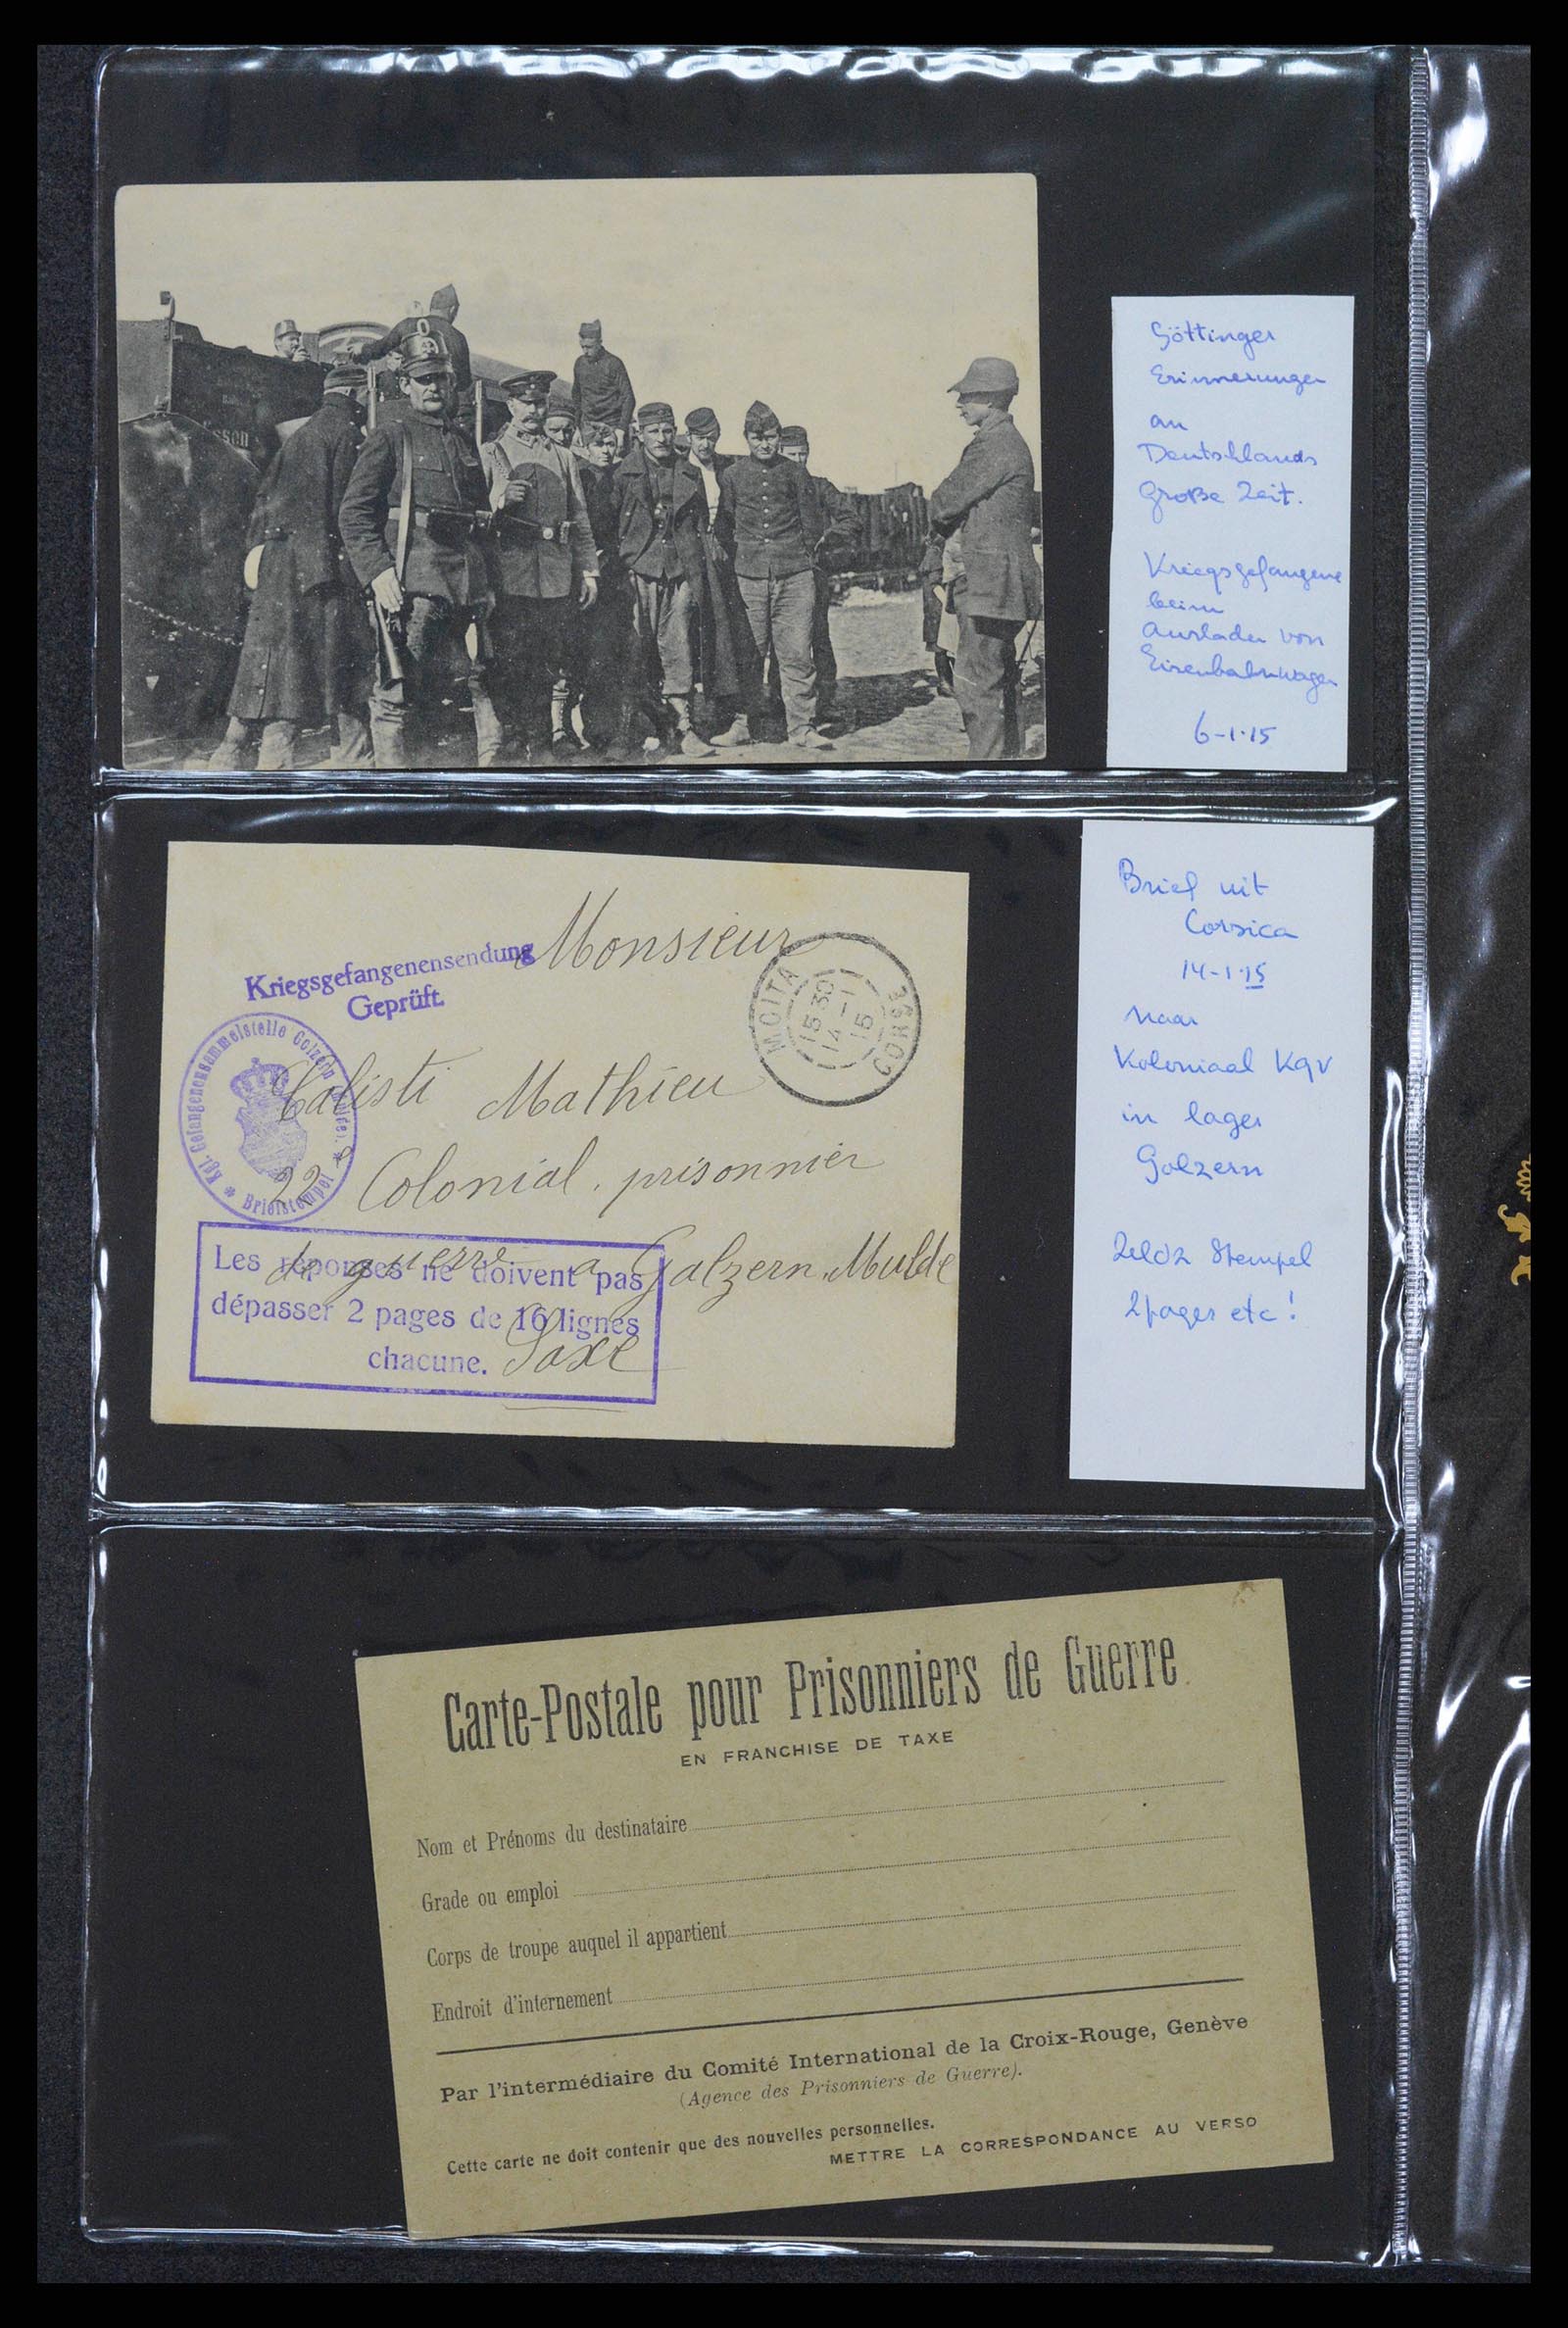 Göttinger
Erinnerungen
an
Deutschlands
Große Zeit.
Kriegsgefangene
beim
Ausladen von
Eisenbahnwagen
6-1-15
Kriegsgefangenensendung
Geprüft.
Monsieur
MOITA
15 30
14 - 1
15
CORSE
Kgl. Gefangenensammelstelle Golzern
Briefstempel
Calisti Mathieu
22e Colonial, prisonnier
de guerre a Golzern, Mulde
Saxe
Les réponses ne doivent pas
dépasser 2 pages de 16 lignes
chacune.
Brief uit
Corsica
14-1-15
naar
Koloniaal Kgv
in lager
Golzern
Zeldz Stempel
2 pages etc!
Carte-Postale pour Prisonniers de Guerre
EN FRANCHISE DE TAXE
Nom et Prénoms du destinataire
Grade ou emploi
Corps de troupe auquel il appartient
Endroit d'internement
Par l'intermédiaire du Comité International de la Croix-Rouge, Genève
(Agence des Prisonniers de Guerre).
Cette carte ne doit contenir que des nouvelles personnelles.
METTRE LA CORRESPONDANCE AU VERSO